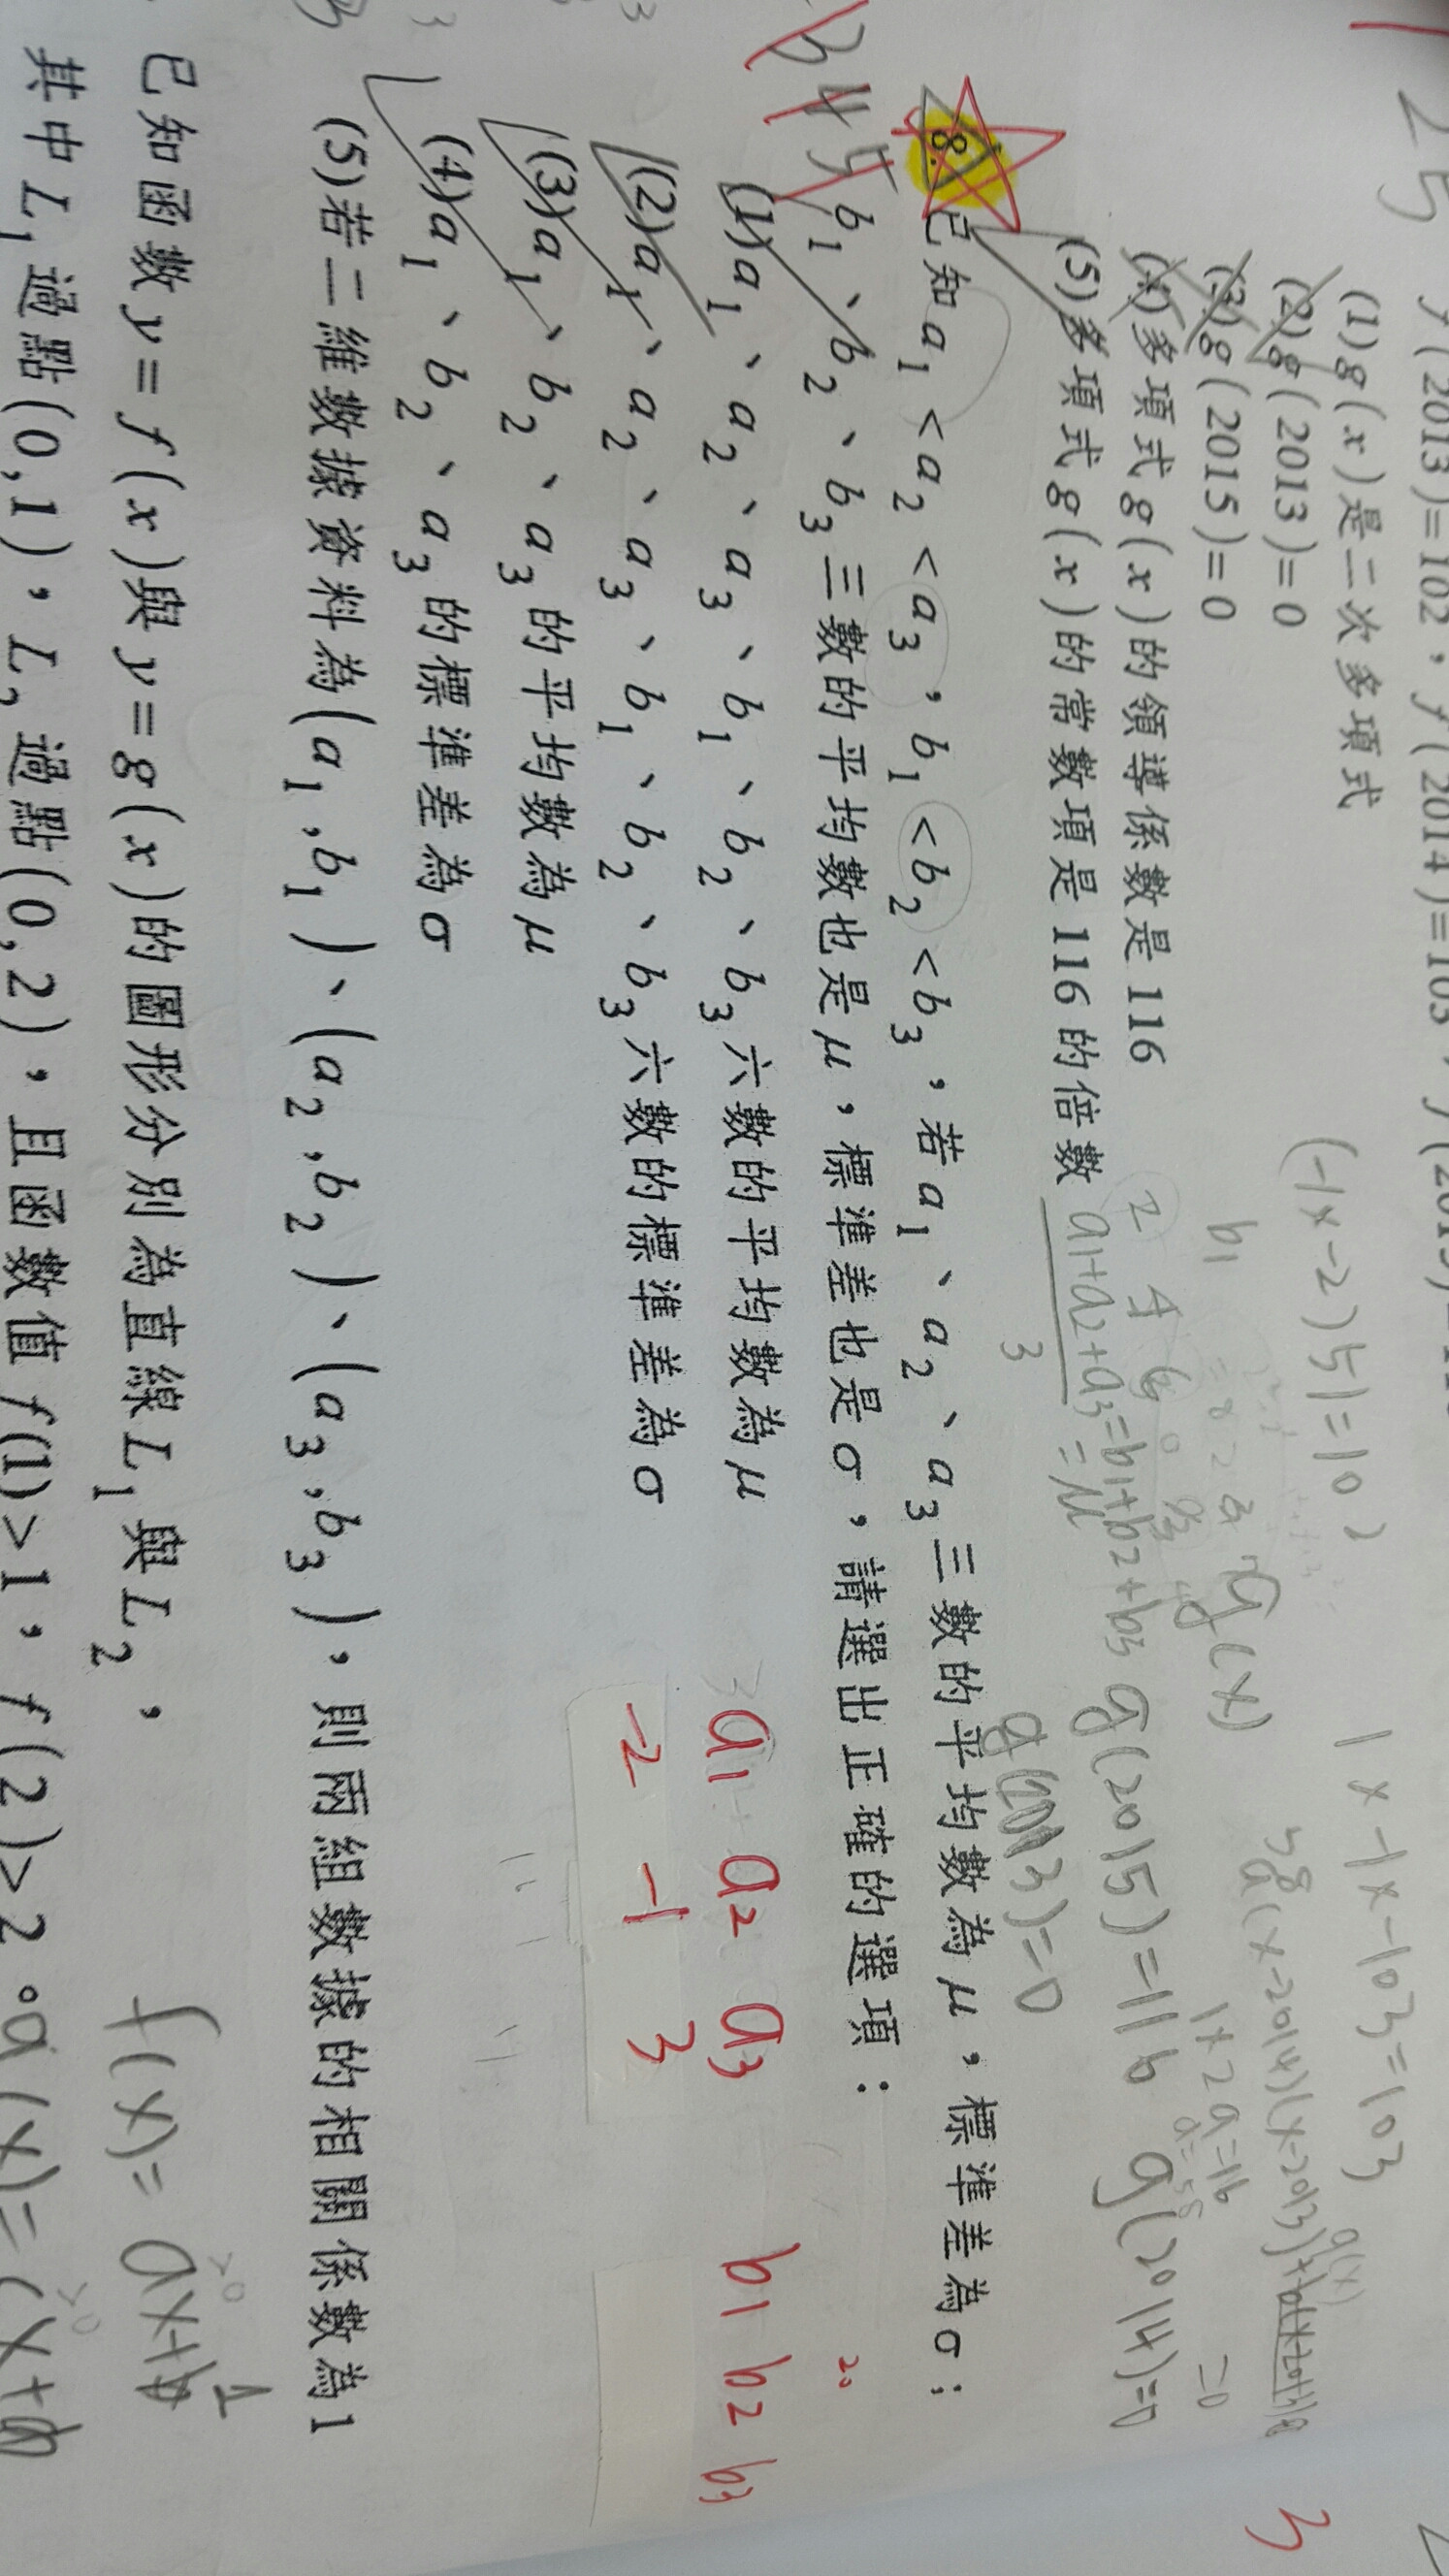 25
f(2013)=102，f(2014)=103，
(1)g(x)是二次多項式
(2)g(2013)=0
(3)g(2015)=0
(4)多項式g(x)的領導係數是116
(5)多項式g(x)的常數項是116的倍數
(-1x-2)51=102
1x-1x-103=103
b1
2 4 6
g(x)
a1+a2+a3=b1+b2+b3
3
=μ
g(2015)=116 g(2014)=0
g(2013)=0
=0
3
8.已知a1<a2<a3，b1<b2<b3，若a1、a2、a3三數的平均數為μ，標準差為σ；
b1、b2、b3三數的平均數也是μ，標準差也是σ，請選出正確的選項：
345
(1)a1、a2、a3、b1、b2、b3六數的平均數為μ
(2)a1、a2、a3、b1、b2、b3六數的標準差為σ
(3)a1、b2、a3的平均數為μ
(4)a1、b2、a3的標準差為σ
(5)若二維數據資料為(a1,b1)、(a2,b2)、(a3,b3)，則兩組數據的相關係數為1
a1 a2 a3
-2 -1 3
b1 b2 b3
已知函數y=f(x)與y=g(x)的圖形分別為直線L1與L2，
其中L1過點(0,1)，L2過點(0,2)，且函數值f(1)>1，f(2)>2。
f(x)=ax+
1
>0
g(x)=